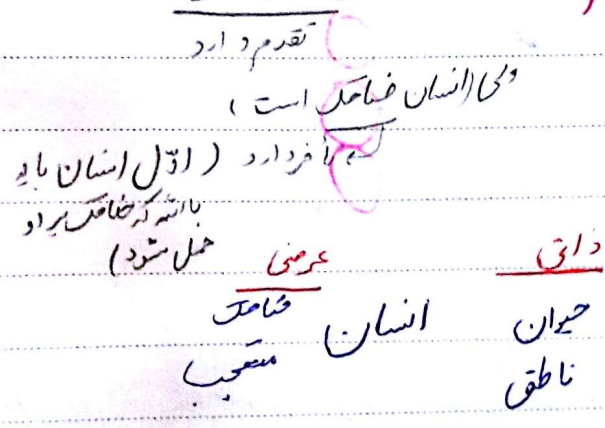 تقدم دارد
ولی (انسان ضاحک است)
تأخر دارد (اوّل انسان باید
باشد که ضاحک بر او
حمل شود)
ذاتی عرضی
حیوان انسان ضاحک
ناطق متعجب